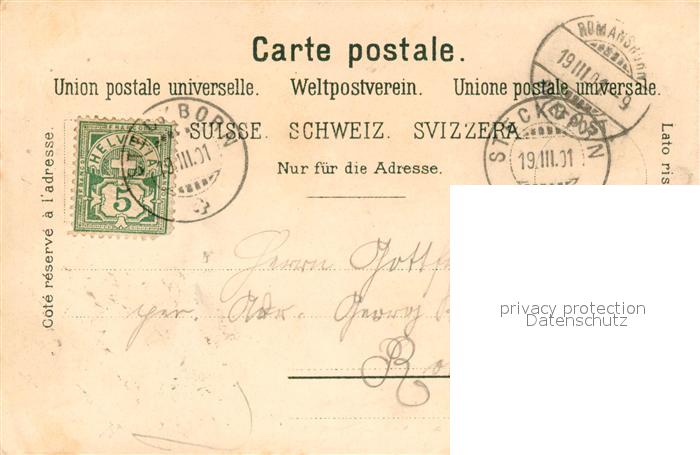 Carte postale.
Union postale universelle. Weltpostverein. Unione postale universale.
SUISSE. SCHWEIZ. SVIZZERA.
Nur für die Adresse.
Côté réservé à l'adresse.
Lato ris
HELVETIA
5
BORN
19.III.01
STECKBORN
19.III.01
ROMANSHORN
19.III.01.-9
Herrn Gottf
per. Adr. Georg
Ro
privacy protection
Datenschutz